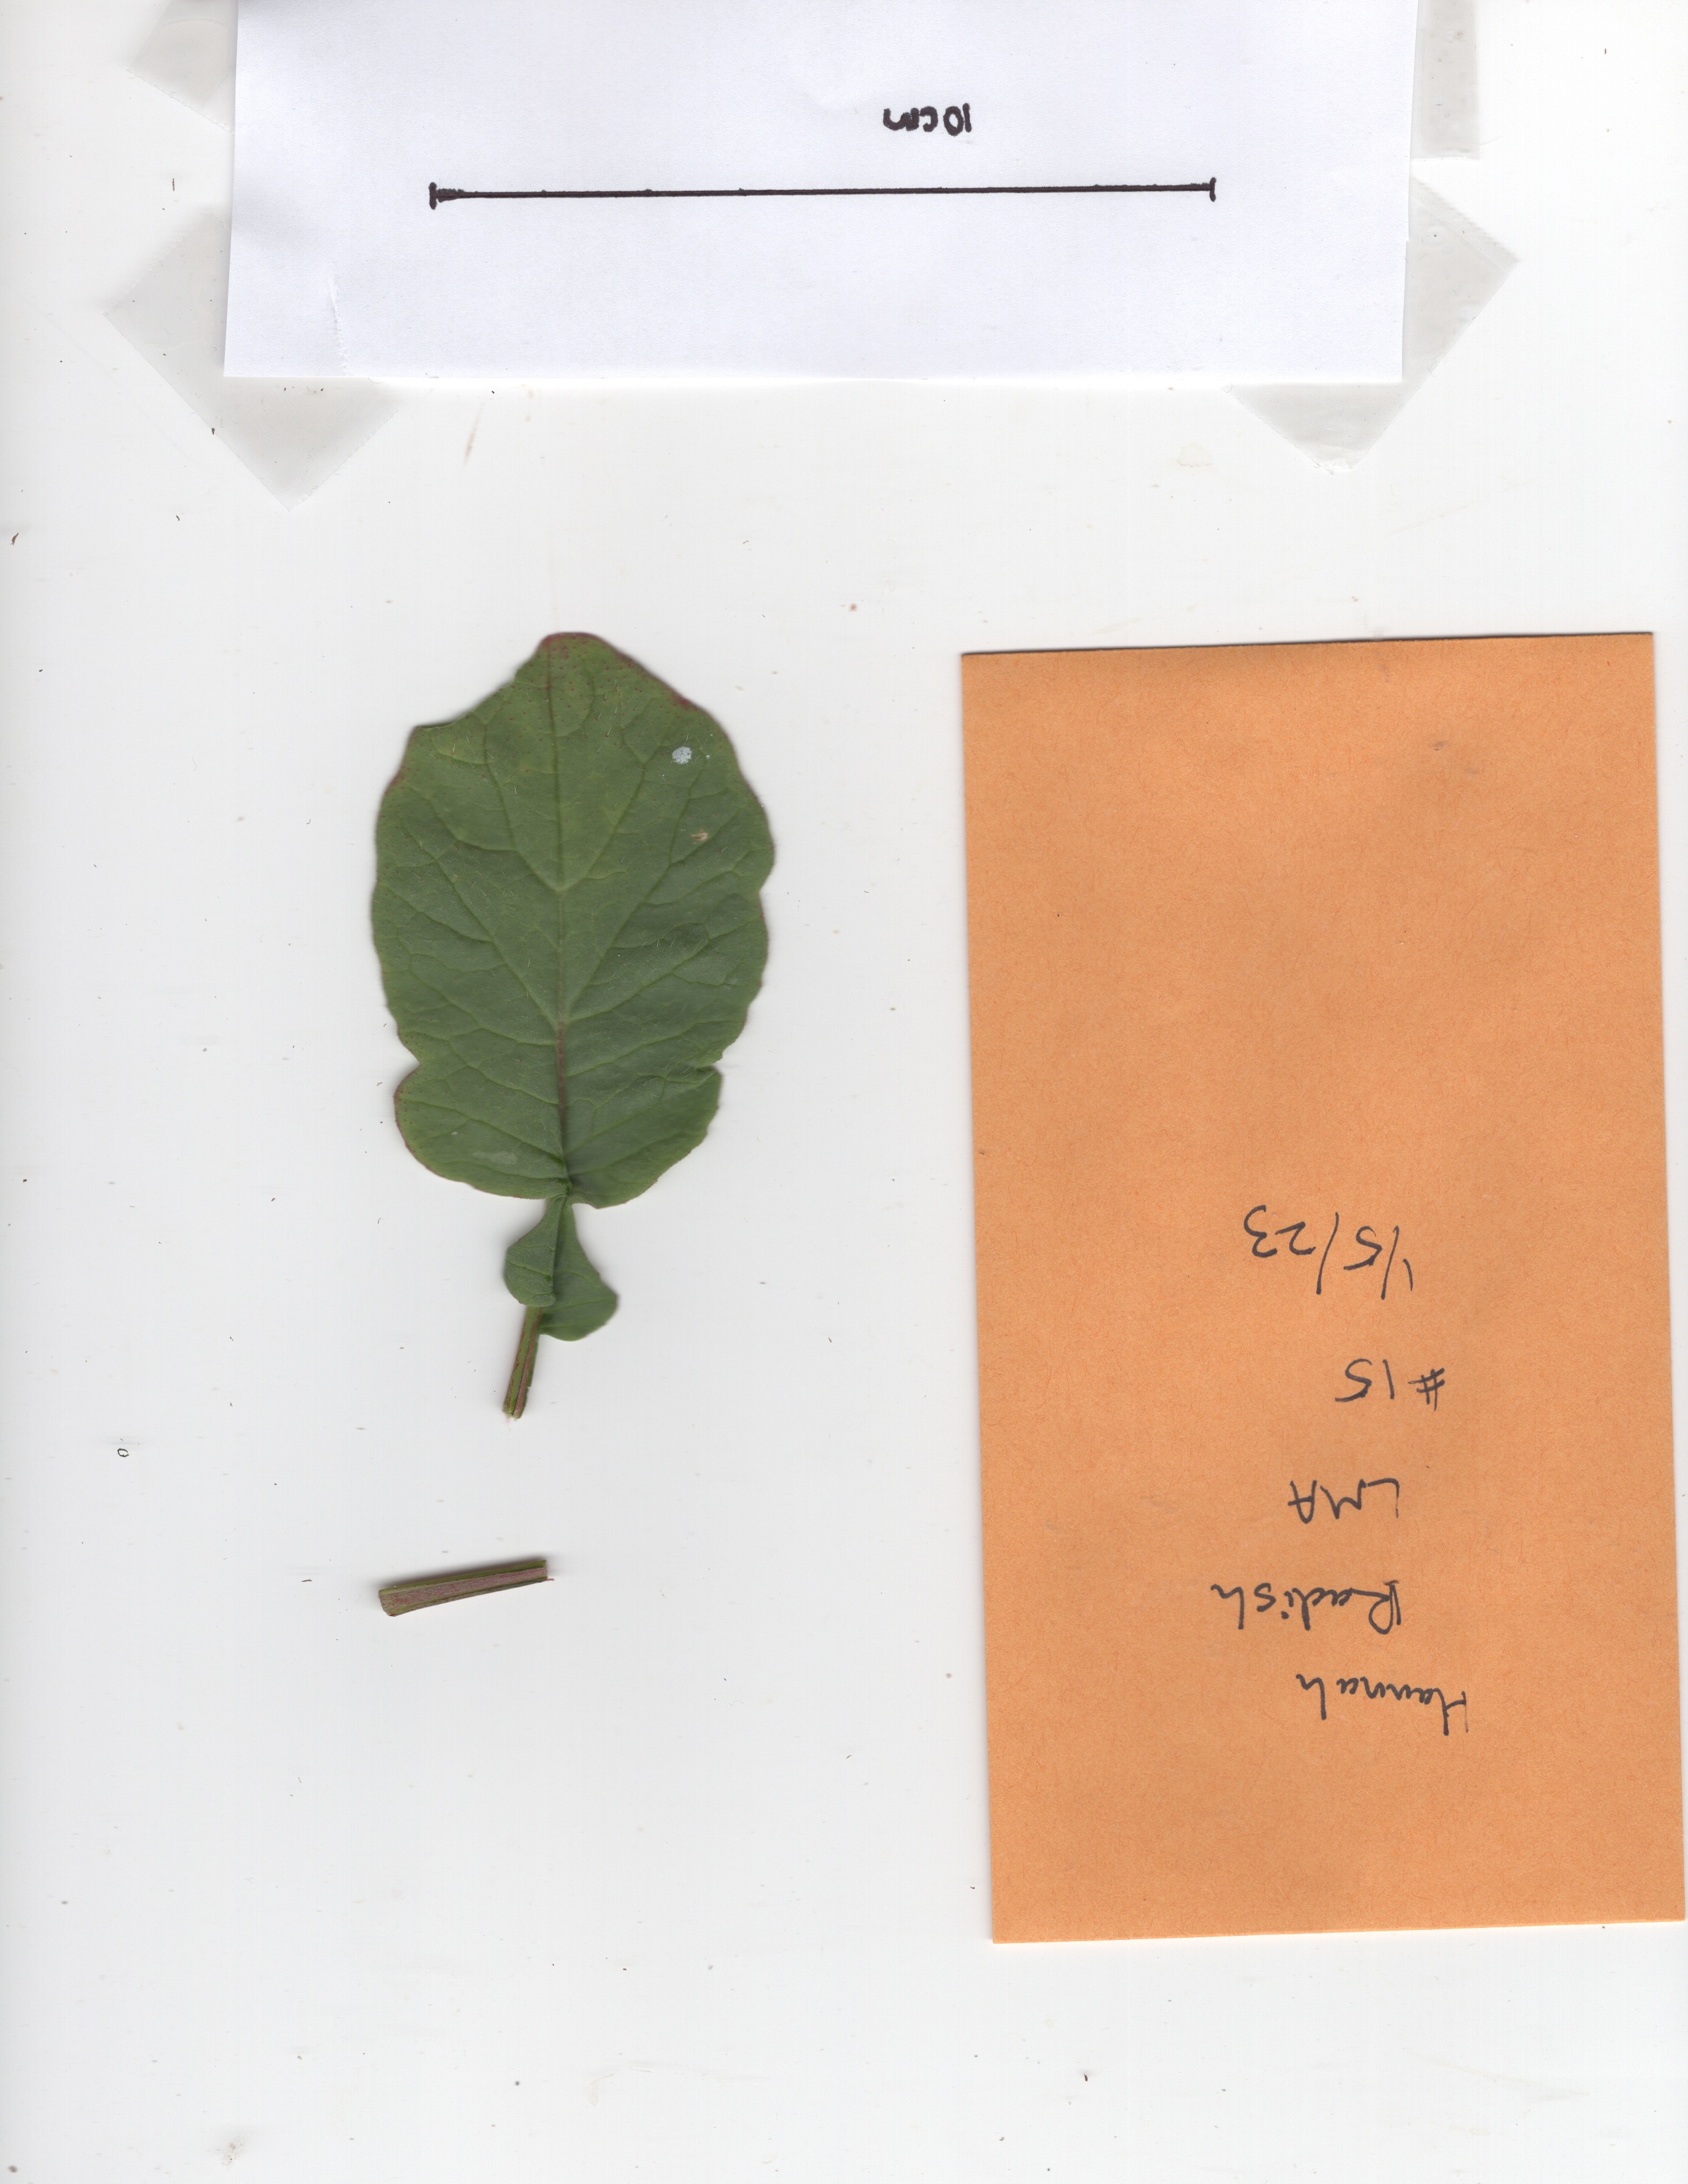 10cm
Hannah
Radish
LMA
#15
1/5/23